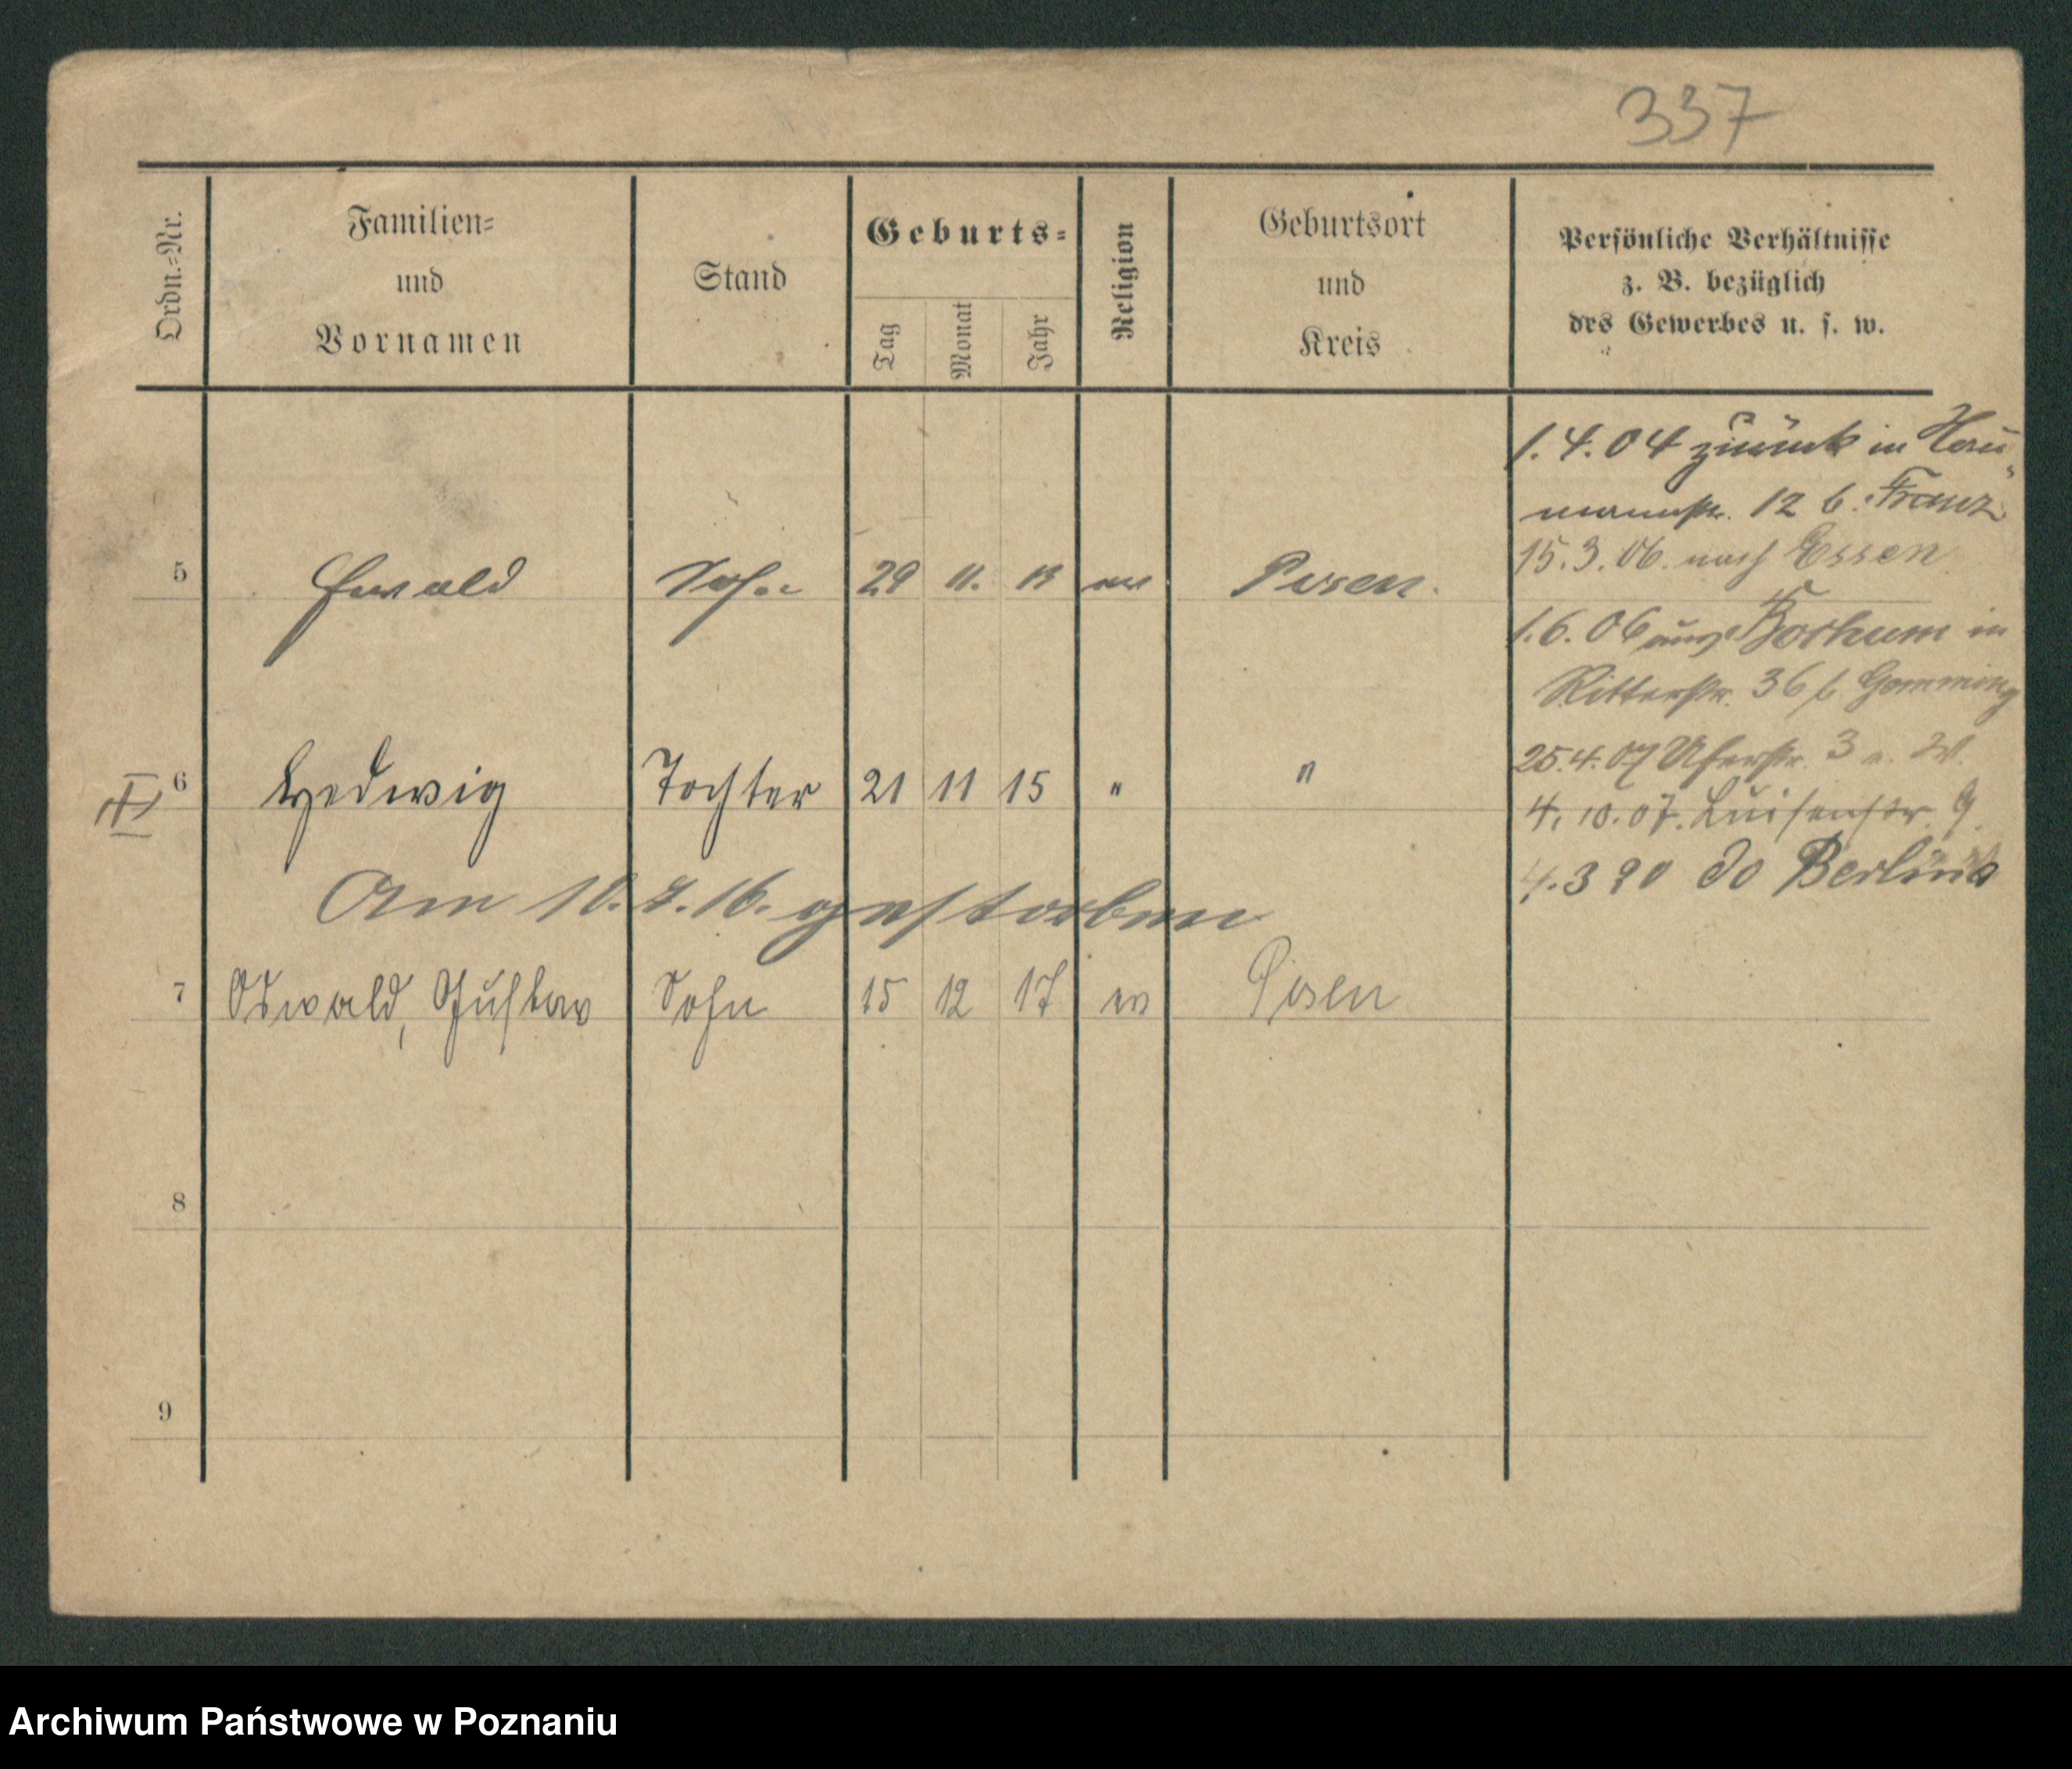 337
Ordn.=Nr.
Familien=
und
Vornamen
Stand
Geburts=
Tag
Monat
Jahr
Religion
Geburtsort
und
Kreis
Persönliche Verhältnisse
z. B. bezüglich
des Gewerbes u. s. w.
1.4.04 zurück in Nau=
mannstr. 12 b. Franz
15.3.06. nach Essen
5 Ewald Sohn 29 11. 13 ev Posen.
1.6.06 aus Bochum in
Ritterstr. 36 b. Gomming
25.4.07 Uferstr. 3
6 Hedwig Tochter 21 11 15 " "
4.10.07. Luisenstr. 9.
4.3 20 do Berlin
Am 10. 16. gestorben
7 Oswald, Gustav Sohn 15 12 17 ev Posen
8
9
Archiwum Państwowe w Poznaniu